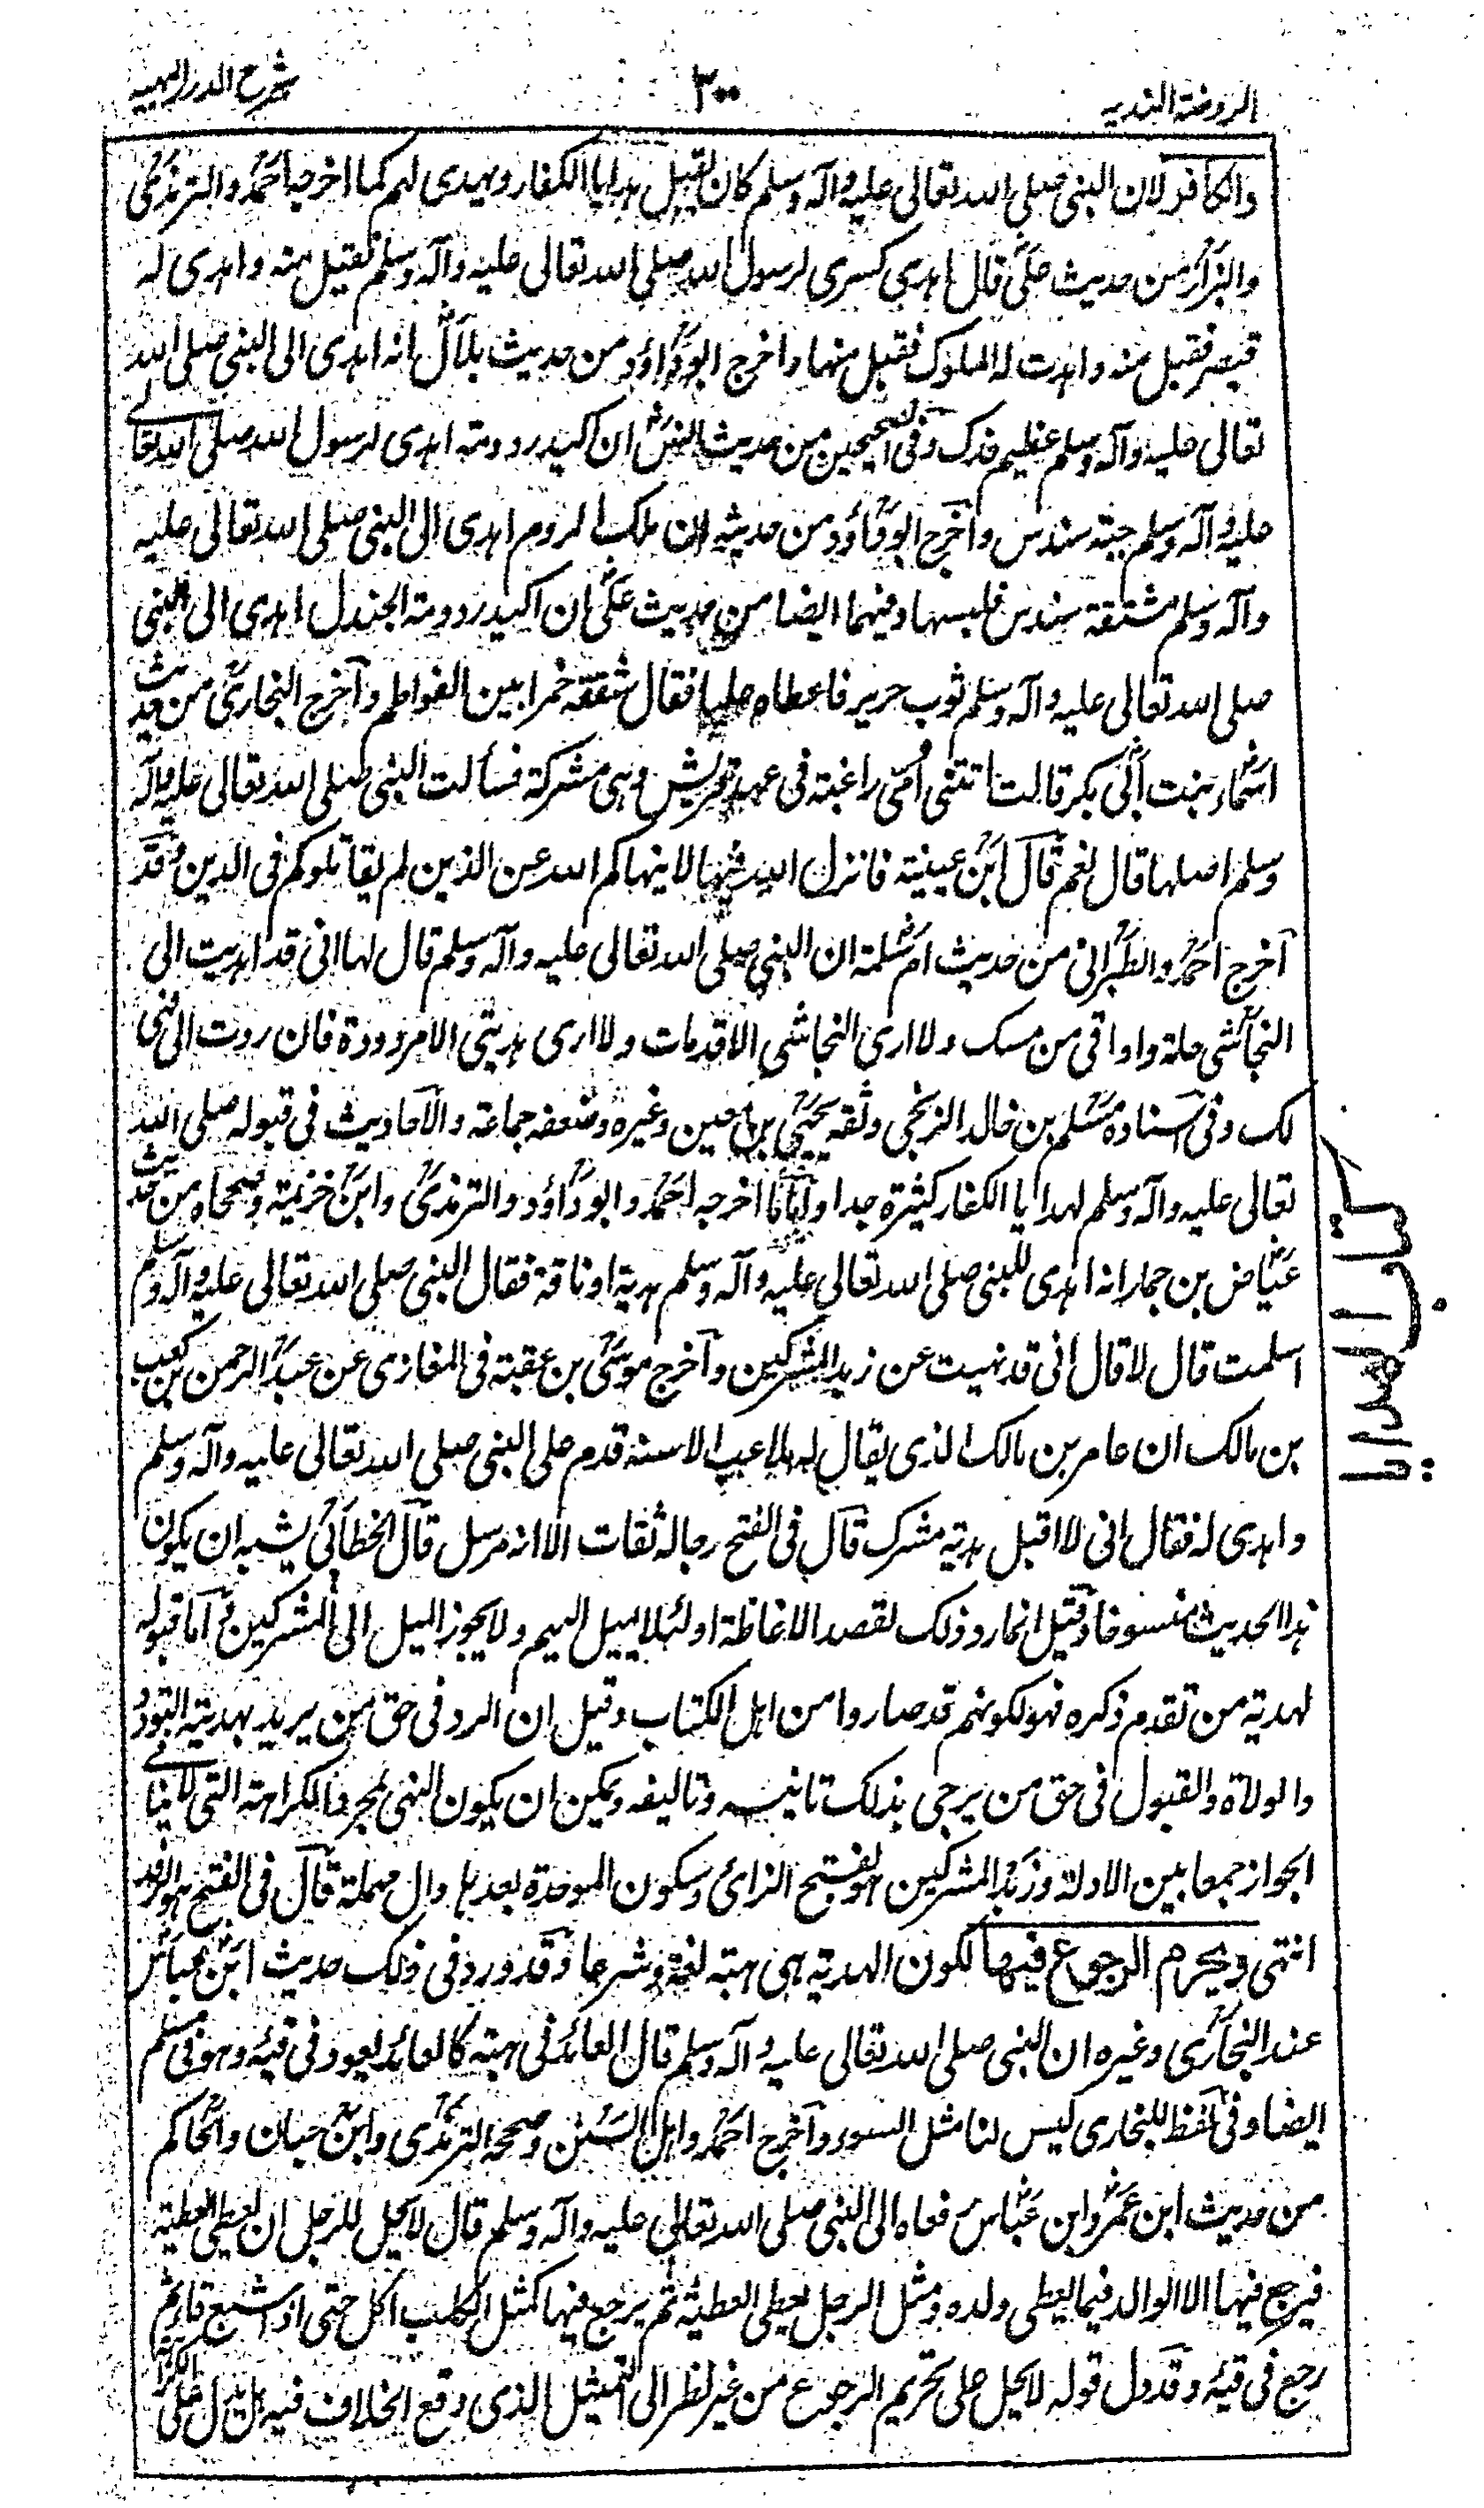 الروضة الندية
٣٠٠
شرح الدرر البهية
والكافر لان النبى صلى الله تعالى عليه وآله وسلم كان يقبل هدايا الكفار ويهدى لهم كما اخرجه احمد والترمذى
والبزار من حديث على قال اهدى كسرى لرسول الله صلى الله تعالى عليه وآله وسلم فقبل منه واهدى له
قيصر فقبل منه واهدت له الملوك فقبل منها واخرج ابوداؤد من حديث بلال انه اهدى الى النبى صلى الله
تعالى عليه وآله وسلم عظيم فدك وفى الصحيحين من حديث انس ان اكيدر دومة اهدى لرسول الله صلى الله تعالى
عليه وآله وسلم جبة سندس واخرج ابوداؤد من حديثه ان ملك الروم اهدى الى النبى صلى الله تعالى عليه
وآله وسلم مشتقة سندس فلبسها وفيهما ايضا من حديث على ان اكيدر دومة الجندل اهدى الى النبى
صلى الله تعالى عليه وآله وسلم ثوب حرير فاعطاه عليا فقال شققه خمرا بين الفواطم وآخرج البخارى من حديث
اسماء بنت ابى بكر قالت اتتنى امى راغبة فى عهد قريش وهى مشركة فسألت النبى صلى الله تعالى عليه وآله
وسلم اصلها قال نعم قال ابن عيينة فانزل الله فيها لا ينهاكم الله عن الذين لم يقاتلوكم فى الدين وقد
آخرج احمد والطبرانى من حديث ام سلمة ان النبى صلى الله تعالى عليه وآله وسلم قال لها انى قد اهديت الى
النجاشى حلة واواقى من مسك ولا ارى النجاشى الا قد مات ولا ارى هديتى الا مردودة فان ردت الى فهى
لك وفى اسناده مسلم بن خالد الزنجى وثقه يحيى بن معين وغيره وضعفه جماعة والاحاديث فى قبوله صلى الله
تعالى عليه وآله وسلم لهدايا الكفار كثيرة جدا واما ما اخرجه احمد وابوداؤد والترمذى وابن خزيمة وصححاه من حديث
عياض بن حمار انه اهدى للنبى صلى الله تعالى عليه وآله وسلم هدية او ناقة فقال النبى صلى الله تعالى عليه وآله وسلم
اسلمت قال لا قال انى قد نهيت عن زبد المشركين وآخرج موسى بن عقبة فى المغازى عن عبد الرحمن بن كعب
بن مالك ان عامر بن مالك الذى يقال له ملاعب الاسنة قدم على النبى صلى الله تعالى عليه وآله وسلم
واهدى له فقال انى لا اقبل هدية مشرك قال فى الفتح رجاله ثقات الا انه مرسل قال الخطابى يشبه ان يكون
هذا الحديث منسوخا وقيل انما رد ذلك لقصد الاغاظة او لئلا يميل اليهم ولا يجوز الميل الى المشركين واما قبوله
لهدية من تقدم ذكره فهو لكونهم قد صاروا من اهل الكتاب وقيل ان الرد فى حق من يريد بهديته التودد
والولاة والقبول فى حق من يرجى بذلك تانيسه وتاليفه ويمكن ان يكون النهى لمجرد الكراهة التى لا تنافى
الجواز جمعا بين الادلة وزبد المشركين هو بفتح الزاى وسكون الموحدة بعدها دال مهملة قال فى الفتح هو الرفد
انتهى ويحرم الرجوع فيها لكون الهدية هى هبة لغة وشرعا وقد ورد فى ذلك حديث ابن عباس
عند البخارى وغيره ان النبى صلى الله تعالى عليه وآله وسلم قال العائد فى هبته كالعائد يعود فى قيئه وهو فى مسلم
ايضا وفى لفظ للبخارى ليس لنا مثل السوء وآخرج احمد واهل السنن وصححه الترمذى وابن حبان والحاكم
من حديث ابن عمر وابن عباس رفعاه الى النبى صلى الله تعالى عليه وآله وسلم قال لا يحل للرجل ان يعطى العطية
فيرجع فيها الا الوالد فيما يعطى ولده ومثل الرجل يعطى العطية ثم يرجع فيها كمثل الكلب اكل حتى اذا شبع قاء ثم
رجع فى قيئه وقد دل قوله لا يحل على تحريم الرجوع من غير نظر الى التمثيل الذى وقع الخلاف فيه هل يدل على الكراهة
كتاب الهدايا